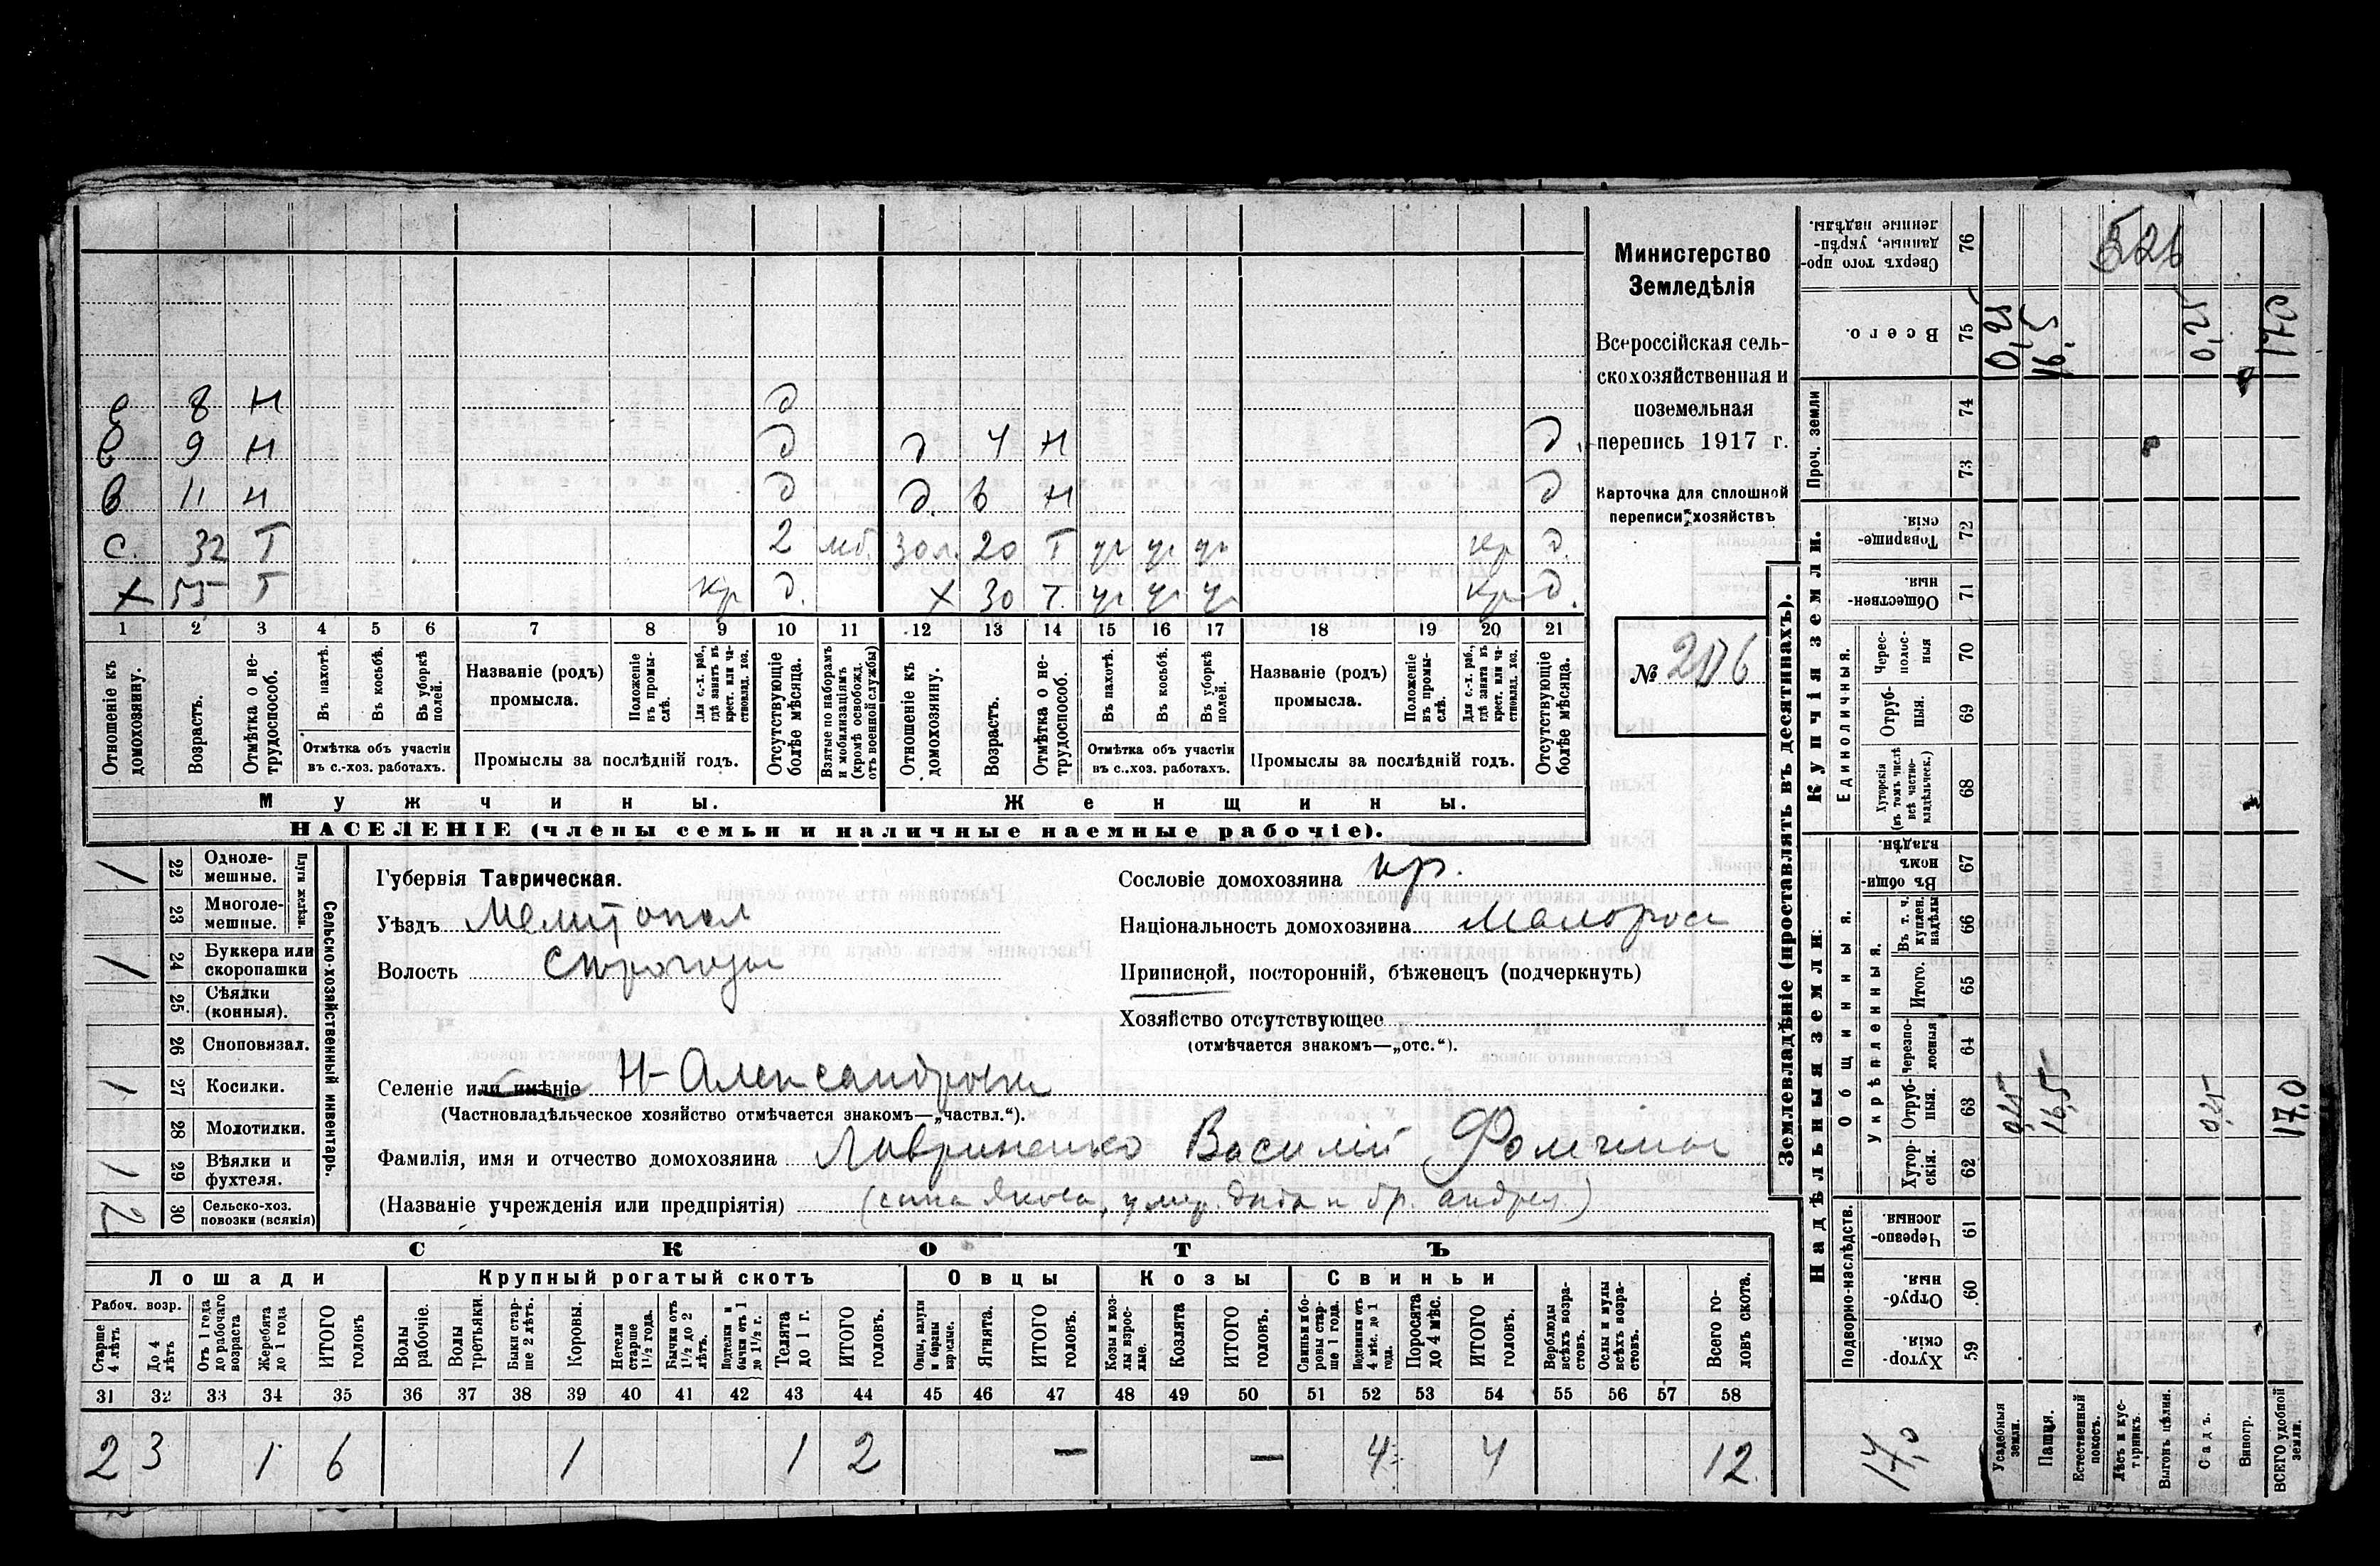 е 8 н д
в 9 н д д 4 н д.
в 11 н д д. 6 н д
с. 32 Т 2 мб. зол. 20 Т уч уч уч кр д.
х 55 Т кр д. х 30 Т. уч уч уч кр д.
1 2 3 4 5 6 7 8 9 10 11 12 13 14 15 16 17 18 19 20 21
Отношеніе къ домохозяину.
Возрастъ.
Отмѣтка о нетрудоспособ.
Въ пахотѣ.
Въ косьбѣ.
Въ уборкѣ полей.
Отмѣтка объ участіи
въ с.-хоз. работахъ.
Названіе (родъ)
промысла.
Положеніе въ промыслѣ.
Для с.-х. раб., гдѣ занятъ въ крест. или частновлад. хоз.
Промыслы за послѣдній годъ.
Отсутствующіе болѣе мѣсяца.
Взятые по наборамъ и мобилизаціямъ (кромѣ освобожд. отъ военной службы)
Отношеніе къ домохозяину.
Возрастъ.
Отмѣтка о нетрудоспособ.
Въ пахотѣ.
Въ косьбѣ.
Въ уборкѣ полей.
Отмѣтка объ участіи
въ с.-хоз. работахъ.
Названіе (родъ)
промысла.
Положеніе въ промыслѣ.
Для с.-х. раб., гдѣ занята въ крест. или частновлад. хоз.
Промыслы за послѣдній годъ.
Отсутствующіе болѣе мѣсяца.
Мужчины. Женщины.
НАСЕЛЕНІЕ (члены семьи и наличные наемные рабочіе).
Министерство
Земледѣлія
Всероссійская сель-
скохозяйственная и
поземельная
перепись 1917 г.
Карточка для сплошной
переписи хозяйствъ
№ 206
Сельско-хозяйственный инвентарь.
Плуги желѣзн.
22 Одноле-
мешные. 1
23 Многоле-
мешные.
24 Буккера или
скоропашки 1
25 Сѣялки
(конныя).
26 Сноповязал.
27 Косилки. 1
28 Молотилки.
29 Вѣялки и
фухтеля. 1
30 Сельско-хоз.
повозки (всякія) 2
Губернія Таврическая.
Уѣздъ Мелитопол
Волость
Селеніе или имѣніе Н-Александровка
(Частновладѣльческое хозяйство отмѣчается знакомъ—„частвл.“).
Фамилія, имя и отчество домохозяина Лавриненко Василій Фомичъ
(Названіе учрежденія или предпріятія) (сына Якова, умер. и бр. Андрея)
Сословіе домохозяина кр.
Національность домохозяина Малоросс
Приписной, посторонній, бѣженецъ (подчеркнуть)
Хозяйство отсутствующее
(отмѣчается знакомъ—„отс.“).
СКОТЪ
Лошади Крупный рогатый скотъ Овцы Козы Свиньи
Рабоч. возр.
Старше 4 лѣтъ
До 4 лѣтъ
Отъ 1 года до рабочаго возраста
Жеребята до 1 года
ИТОГО головъ
Волы рабочіе.
Волы третьяки.
Быки старше 2 лѣтъ.
Коровы.
Нетели старше 1½ года.
Бычки отъ 1½ до 2 лѣтъ.
Подтелки и бычки отъ 1 до 1½ г.
Телята до 1 г.
ИТОГО головъ.
Овцы, валухи и бараны взрослые.
Ягнята.
ИТОГО головъ.
Козы и козлы взрослые.
Козлята
ИТОГО головъ.
Свиньи и боровы старше 1 года.
Подсвинки отъ 4 мѣс. до 1 года.
Поросята до 4 мѣс.
ИТОГО головъ.
Верблюды всѣхъ возрастовъ.
Ослы и мулы всѣхъ возрастовъ.
Всего головъ скота.
31 32 33 34 35 36 37 38 39 40 41 42 43 44 45 46 47 48 49 50 51 52 53 54 55 56 57 58
2 3 1 6 1 1 2 — — 4 4 12
Землевладѣніе (проставлять въ десятинахъ).
Надѣльныя земли.
Купчія земли.
Проч. земли
Подворно-наслѣдств.
Общинныя.
Укрѣпленныя.
Единоличныя.
Сверхъ того проданные, укрѣпленные надѣлы. 76
Всего. 75 0,25 16,5 0,25 17,0
74
73
Товарищескія. 72
Общественныя. 71
Черезполосныя 70
Отрубныя. 69
Хуторскія (въ томъ числѣ всѣ частновладѣльческ.) 68
Въ общинномъ владѣн. 67
Въ т. ч. куплен. надѣлы 66
Итого. 65
Черезполосныя 64
Отрубныя. 63 0,25 16,5 0,25 17,0
Хуторскія. 62
Черезполосныя. 61
Отрубныя. 60
Хуторскія. 59
17,0
Усадебныя земли.
Пашня.
Естественный покосъ.
Лѣсъ и кустарникъ.
Выгонъ цѣлин.
Садъ.
Виногр.
ВСЕГО удобной земли.